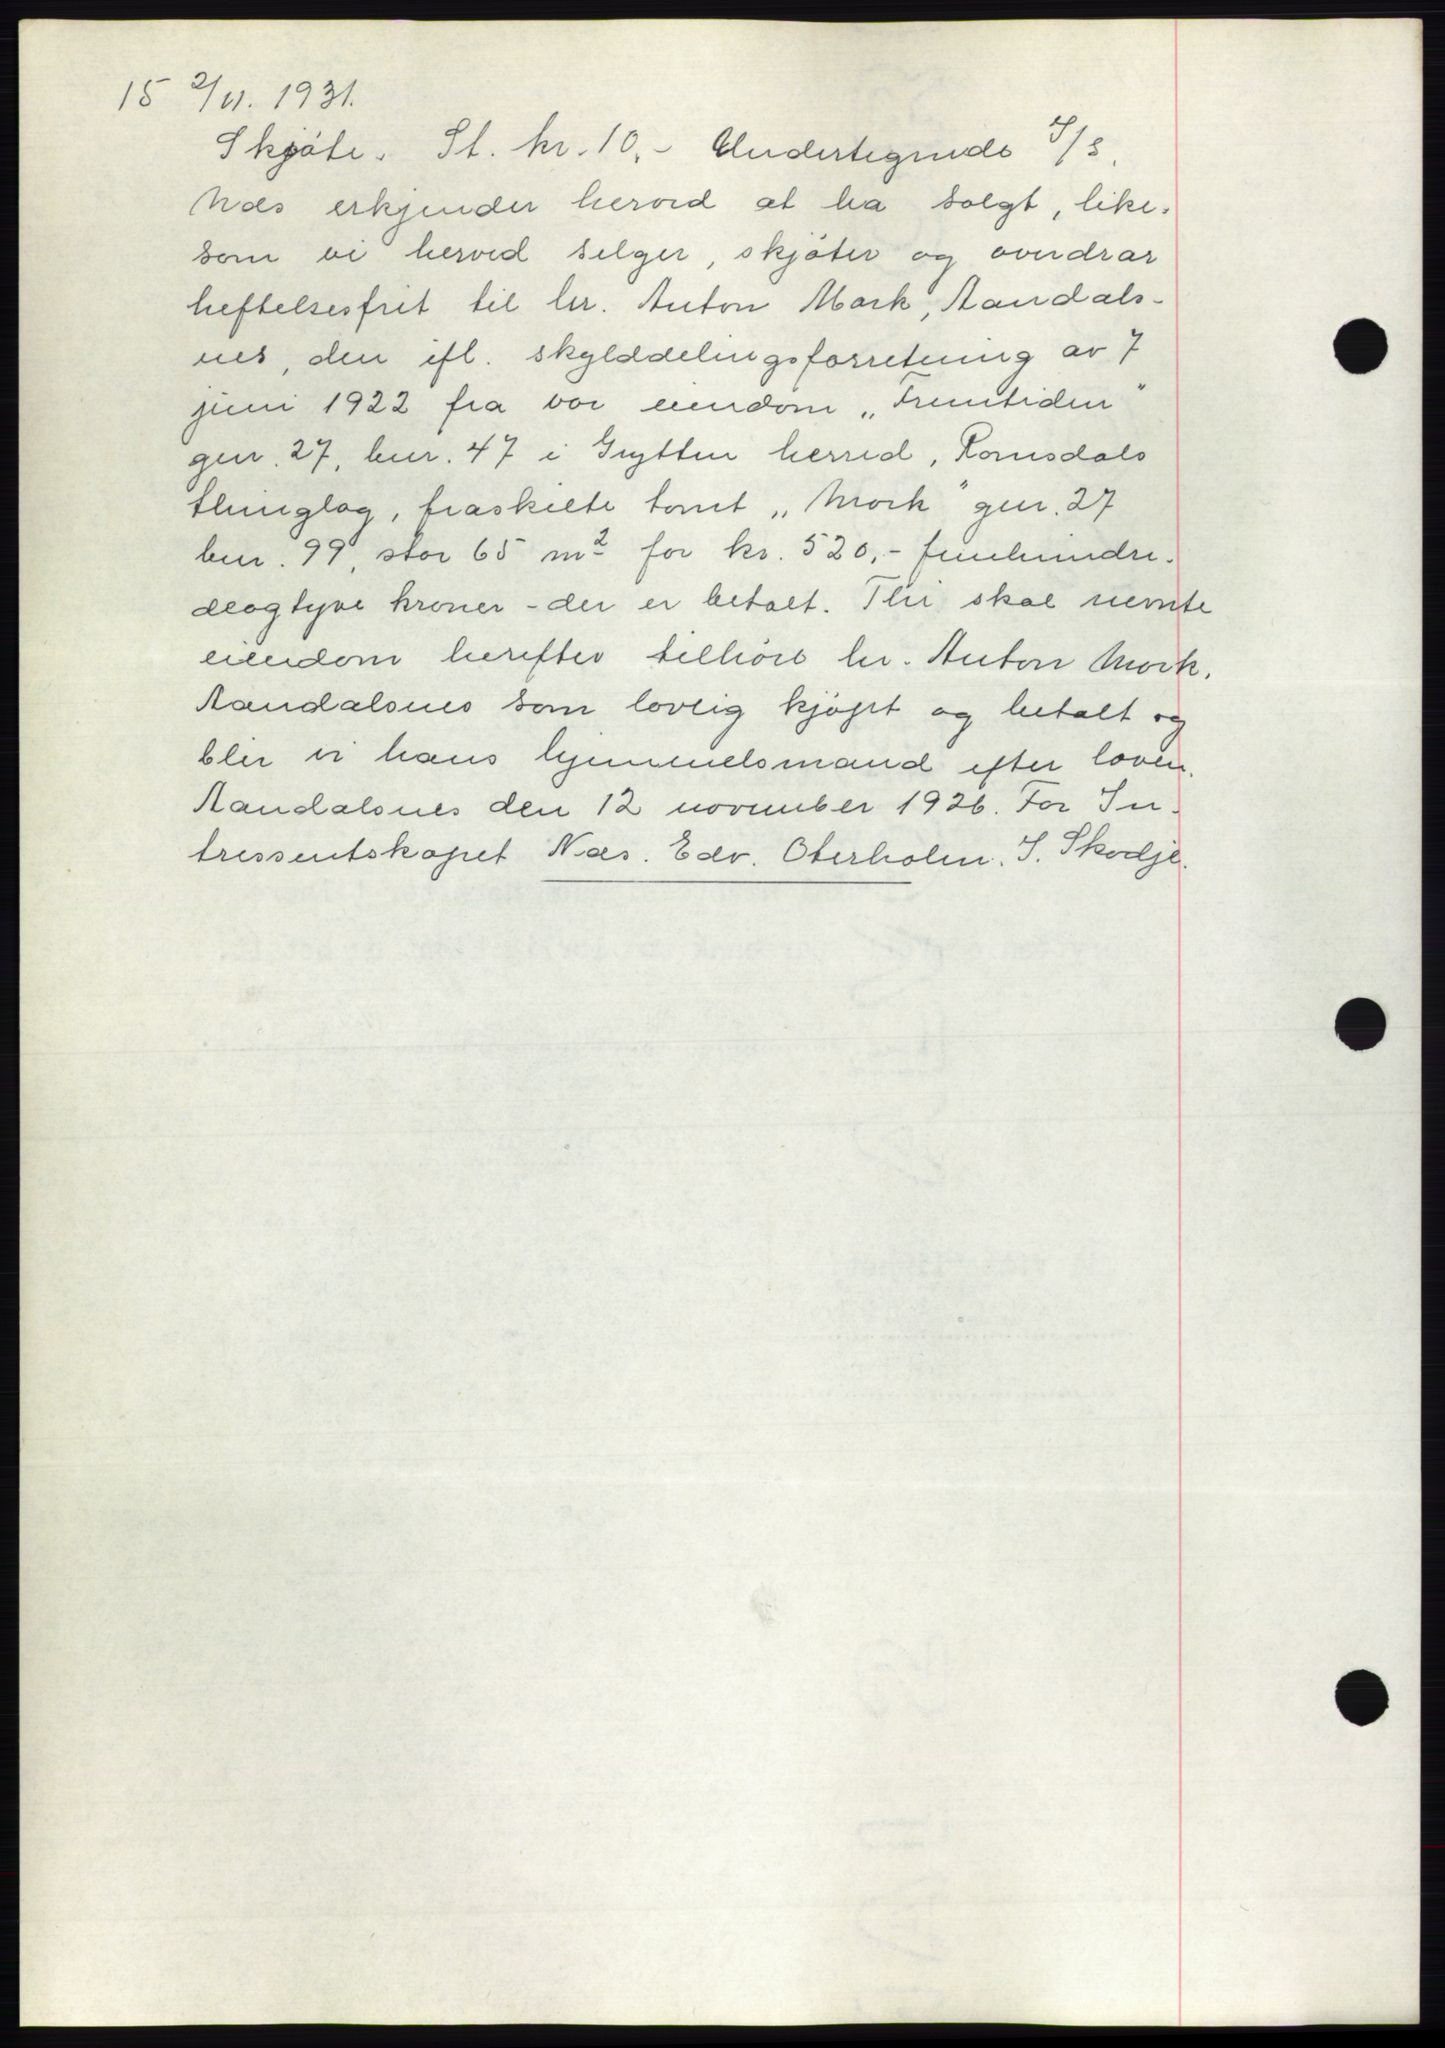 15 2/11. 1931.
Skjøte. St. kr. 10,- Undertegnede I/S.
Næs erkjender herved at ha solgt, like-
som vi herved selger, skjøter og overdrar
heftelsesfrit til hr. Anton Mork, Aandals-
nes, den ifl. skylddelingsforretning av 7
juni 1922 fra vor eiendom „Fremtiden"
gnr. 27, bnr. 47 i Grytten herred, Romsdals
thinglag, fraskilte tomt „Mork" gnr. 27
bnr. 99, stor 65 m2 for kr. 520,- femhundre-
deogtyve kroner - der er betalt. Thi skal nevnte
eiendom herefter tilhøre hr. Anton Mork,
Aandalsnes som lovlig kjøpt og betalt og
blir vi hans hjemmelsmand efter loven.
Aandalsnes den 12 november 1926. For In-
tressentskapet Næs. Edv. Oterholm. I. Skodje.